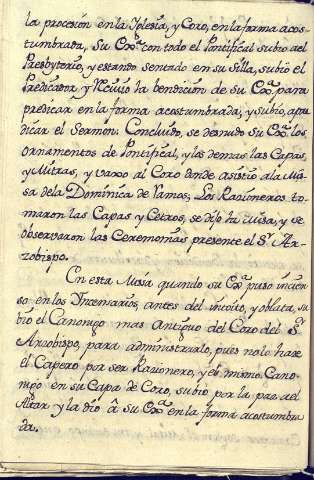 la procesion en la Yglesia, y Coro, en la forma acos-
tumbrada, Su Exª con todo el Pontifical subio ael
Presbyterio, y estando sentado en su Silla, subio el
Predicador, y Recivio la bendicion de su Exª para
predicar en la forma acostumbrada; y subio, apre
dicar el Sermon. Concluido, se desnudo su Exª los
ornamentos de Pontifical, y los demas las Capas,
y Mitras, y vaxo al Coro donde asistio ala Mi-
sa dela Dominica de Ramos; Los Razioneros to-
maron las Capas y Cetros, se dijo la Misa, y se
observaron las Ceremonias presente el Sr Ar-
zobispo.
En esta Misa quando su Exª puso incien
so en los Yncensarios, antes del introito, y oblata, su
bio el Canonigo mas Antiguo del Coro del Sr
Arzobispo, para administrarlo, pues no lo haze
el Capero por ser Razionero, y el mismo Cano-
nigo en su Capa de Coro, subio por la paz ael
Altar y la dio â su Exª en la forma acostumbra
da.